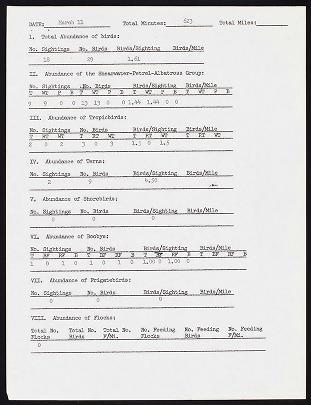 DATE: March 11 Total Minutes: 623 Total Miles:
I. Total Abundance of birds:
No. Sightings No. Birds Birds/Sighting Birds/Mile
18 29 1.61
II. Abundance of the Shearwater-Petrel-Albatross Group:
No. Sightings No. Birds Birds/Sighting Birds/Mile
T WT P B T WT P B T WT P B T WT P B
9 9 0 0 13 13 0 0 1.44 1.44 0 0
III. Abundance of Tropicbirds:
No. Sightings No. Birds Birds/Sighting Birds/Mile
T RT WT T RT WT T RT WT T RT WT
2 0 2 3 0 3 1.5 0 1.5
IV. Abundance of Terns:
No. Sightings No. Birds Birds/Sighting Birds/Mile
2 9 4.50
V. Abundance of Shorebirds:
No. Sightings No. Birds Birds/Sighting Birds/Mile
0 0 0
VI. Abundance of Boobys:
No. Sightings No. Birds Birds/Sighting Birds/Mile
T BF RF B T BF RF B T BF RF B T BF RF B
1 0 1 0 1 0 1 0 1.00 0 1.00 0
VII. Abundance of Frigatebirds:
No. Sightings No. Birds Birds/Sighting Birds/Mile
0 0 0
VIII. Abundance of Flocks:
Total No. Total No. Total No. No. Feeding No. Feeding No. Feeding
Flocks Birds F/Mi. Flocks Birds F/Mi.